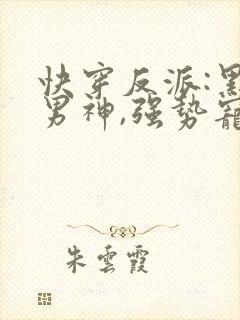 快穿反派:黑
男神,强势宠
朱雲霞